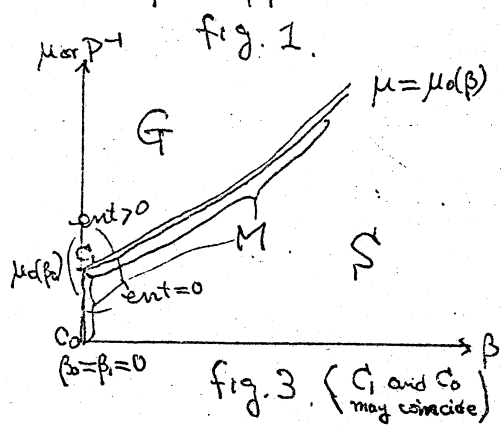 fig. 1.
μ or P⁻¹
μ = μ₀(β)
G
ent>0
C₁
μ₀(β₀)
M
S
ent=0
C₀
β
β₀=β₁=0
fig. 3. (C₁ and C₀
may coincide)